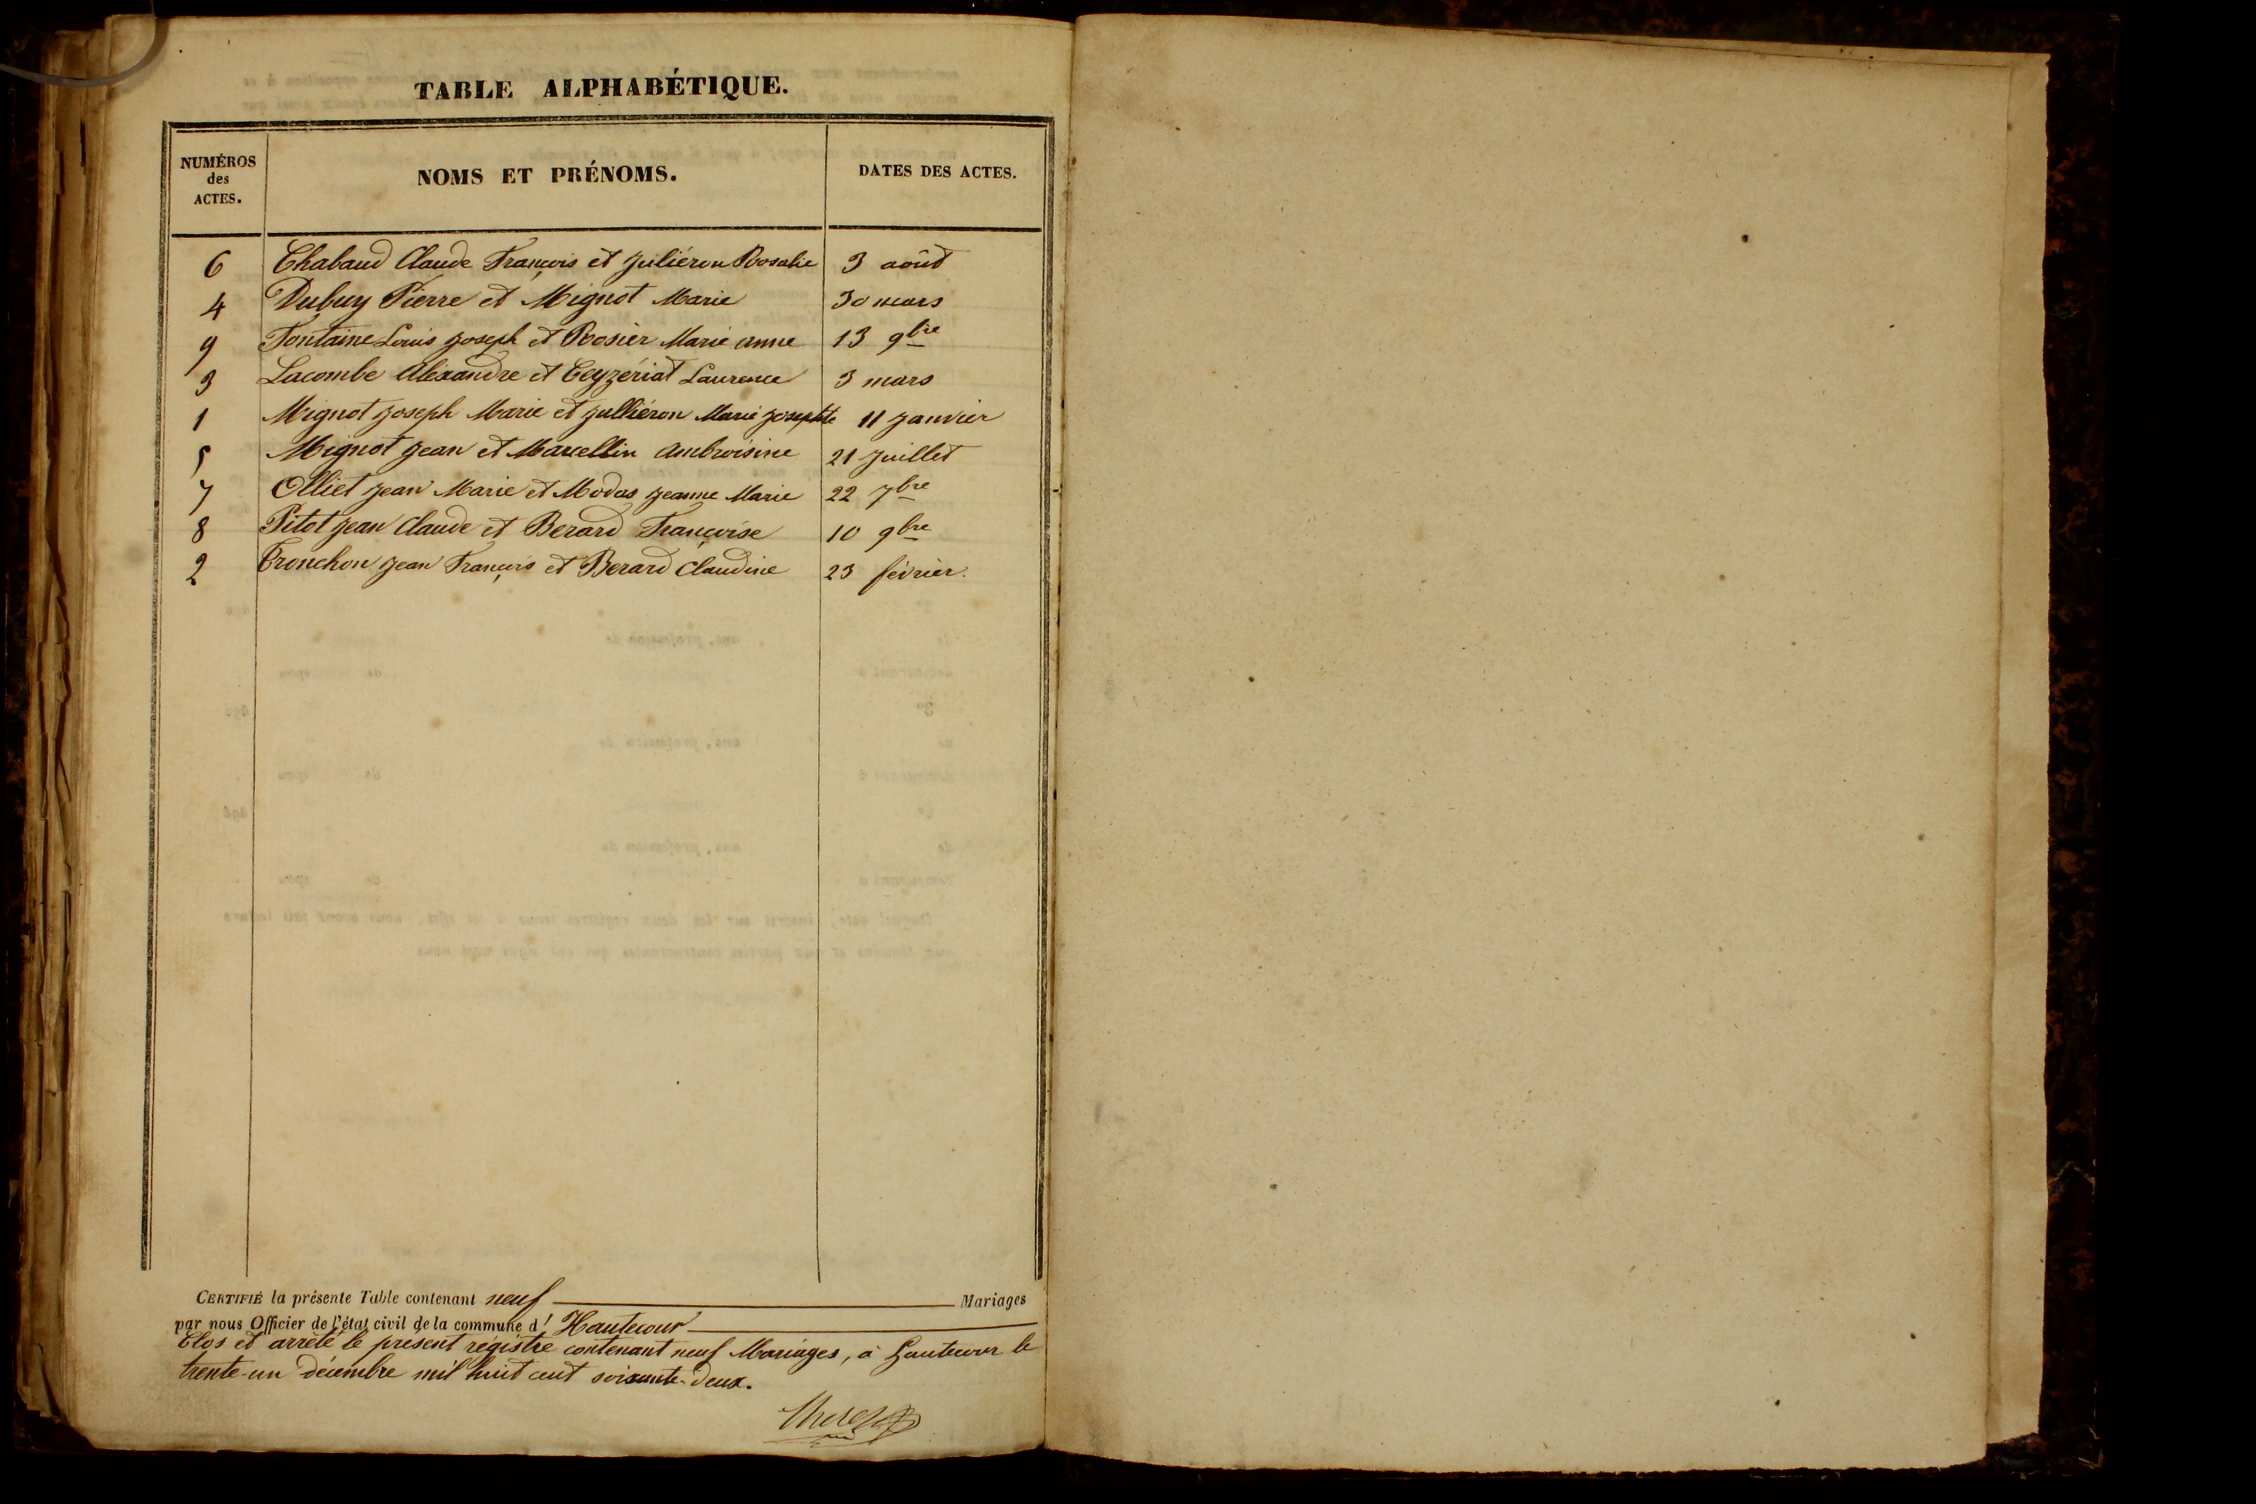 TABLE ALPHABÉTIQUE.
NUMÉROS des ACTES. NOMS ET PRÉNOMS. DATES DES ACTES.
6 Chabaud Claude François et Juliéron Rosalie 3 août
4 Dubuy Pierre et Mignot Marie 30 mars
9 Fontaine Louis Joseph et Rosier Marie anne 13 9bre
3 Lacombe Alexandre et Ceyzériat Laurence 3 mars
1 Mignot Joseph Marie et Julliéron Marie Josephte 11 Janvier
5 Mignot Jean et Marcellin Ambroisine 21 Juillet
7 Olliet Jean Marie et Modas Jeanne Marie 22 7bre
8 Pitot Jean Claude et Berard Françoise 10 9bre
2 Tronchon Jean François et Berard Claudine 23 février.
CERTIFIÉ la présente Table contenant neuf Mariages
par nous Officier de l'état civil de la commune d' Hautecour
Clos et arrêté le présent régistre contenant neuf Mariages, à hautecour le
trente-un décembre mil huit cent soixante-deux.